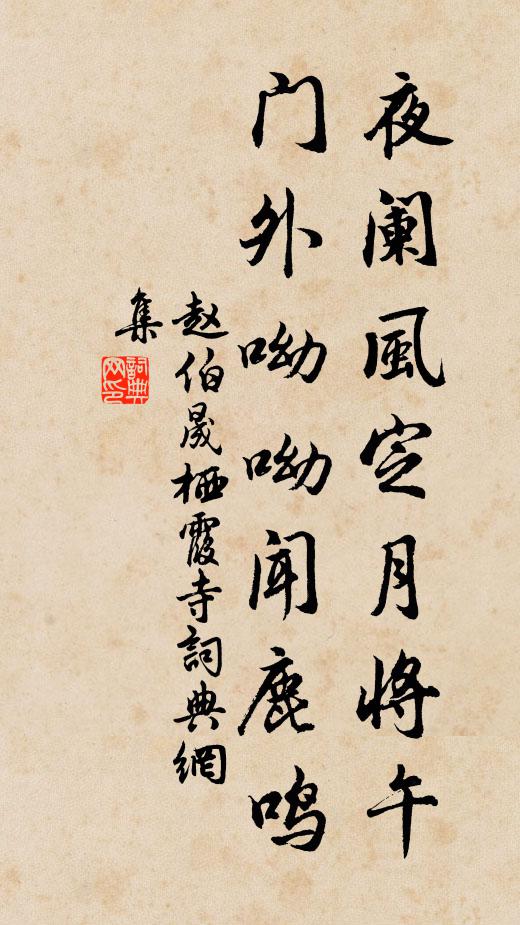 夜阑風定月将午
门外呦呦闻鹿鸣
赵伯晟栖霞寺詞典網
集
詞典網印